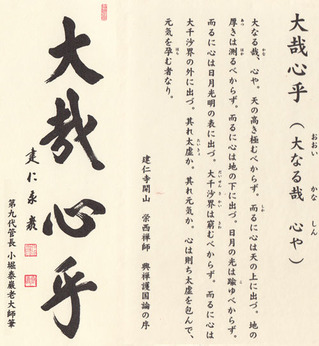 大哉心乎（大なる哉　心や）
大なる哉、心や。天の高き極むべからず。而るに心は天の上に出づ。地の
厚きは測るべからず。而るに心は地の下に出づ。日月の光は踰ゆべからず。
而るに心は日月光明の表に出づ。大千沙界は窮むべからず。而るに心は
大千沙界の外に出づ。其れ太虚か。其れ元気か。心は則ち太虚を包んで、
元気を孕む者なり。
建仁寺開山　栄西禅師　興禅護国論の序
大哉心乎
建仁泰巌
第九代管長　小堀泰巌老大師筆